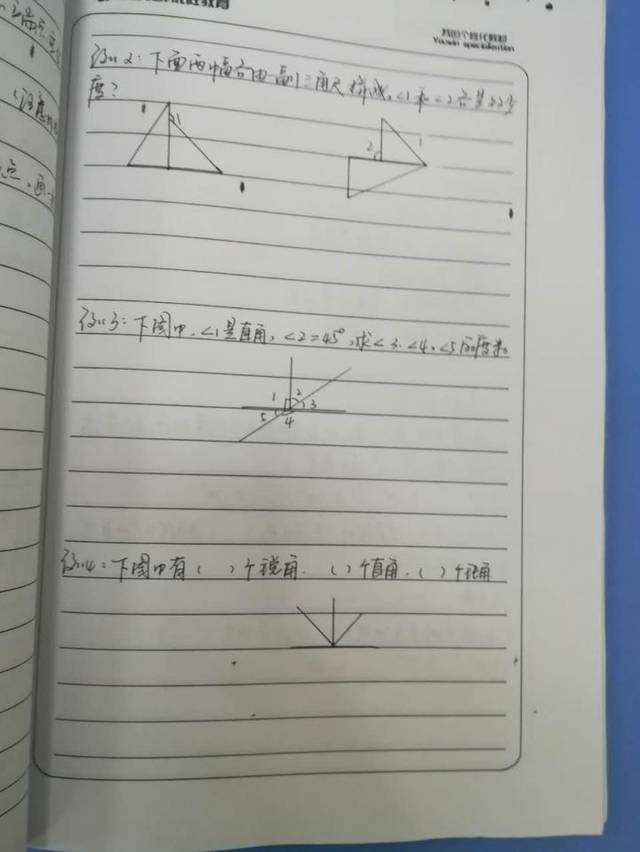 教育
Youwin specialization
例2:下面两幅图由一副三角尺拼成,∠1和∠2各是多少
度?
1
2
1
例3:下图中,∠1是直角,∠2=45°,求∠3、∠4、∠5的度数
1 2
3
5 4
例4:下图中有( )个锐角,( )个直角,( )个钝角